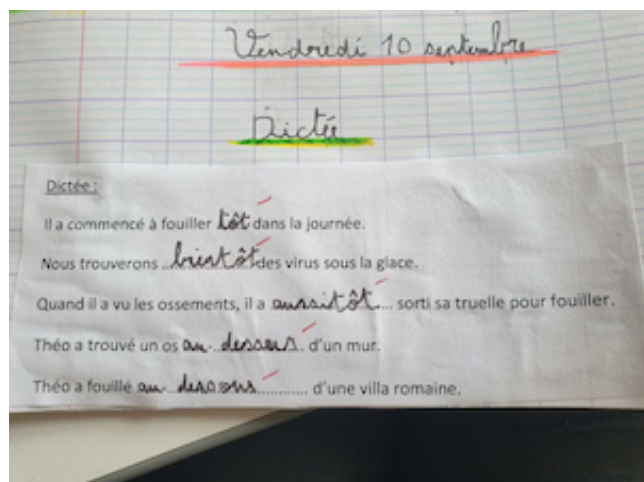 Vendredi 10 septembre
Dictée
Dictée :
Il a commencé à fouiller tôt dans la journée.
Nous trouverons bientôt des virus sous la glace.
Quand il a vu les ossements, il a aussitôt... sorti sa truelle pour fouiller.
Théo a trouvé un os au-dessus d'un mur.
Théo a fouillé au-dessous............ d'une villa romaine.